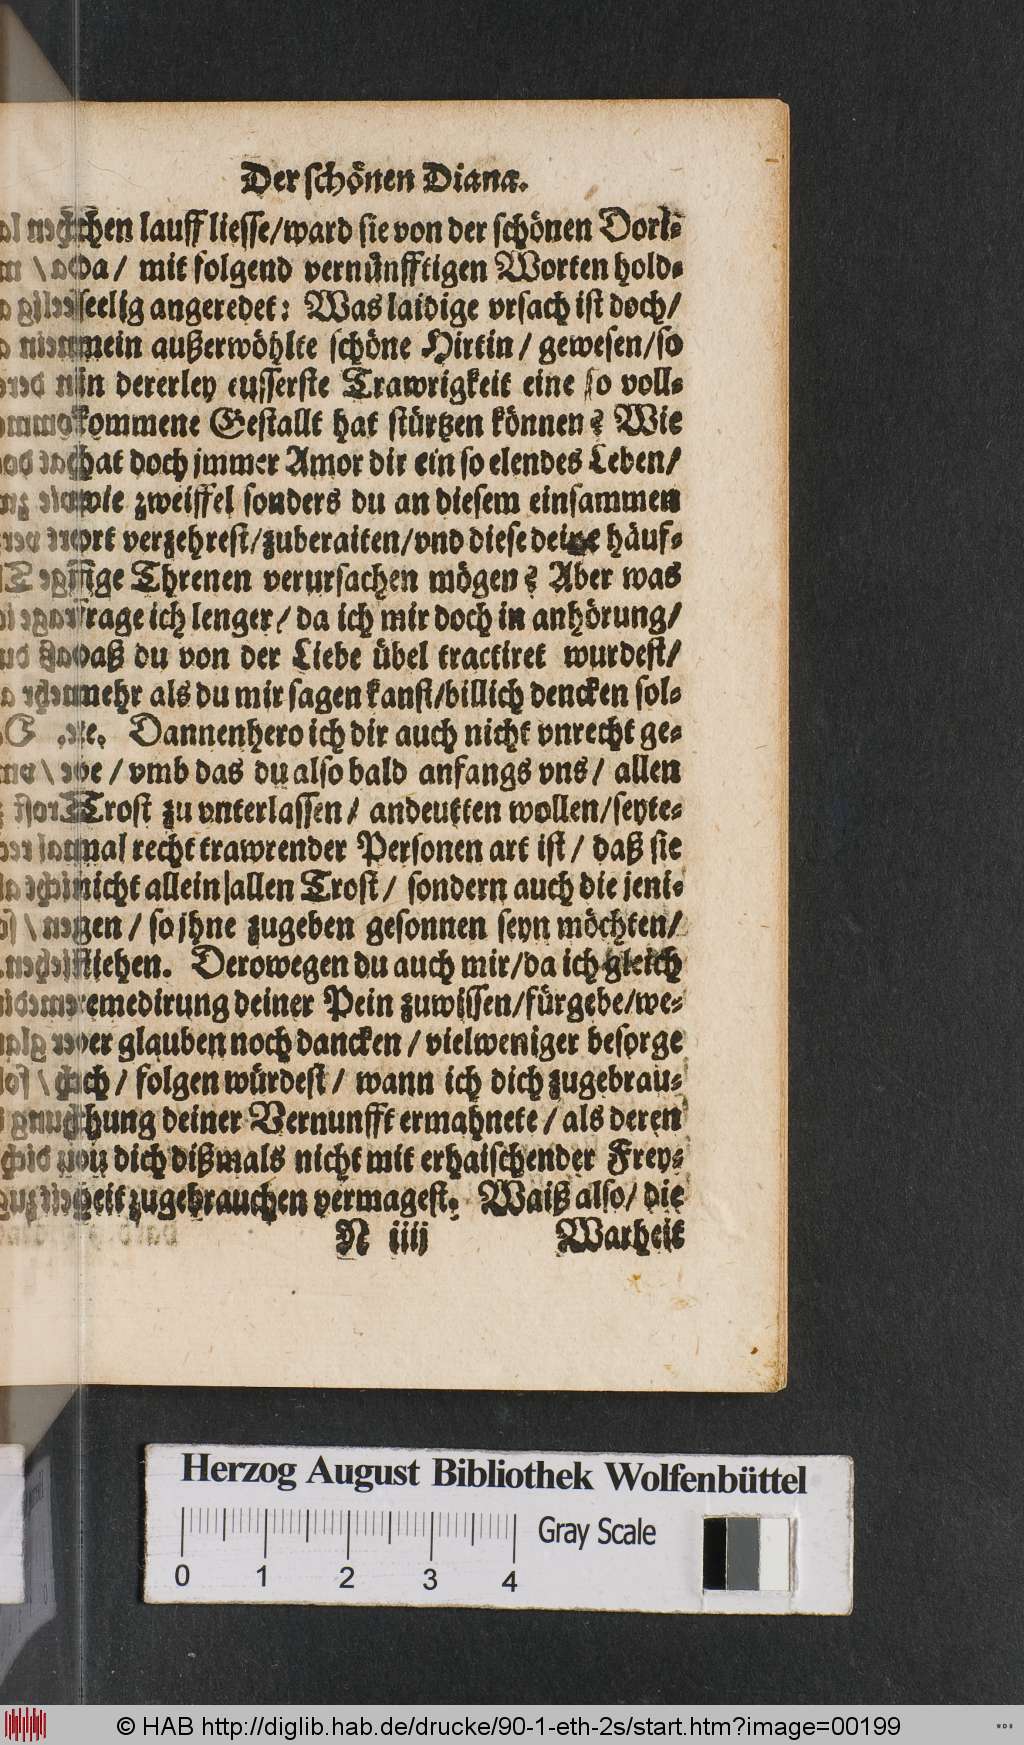 Der schönen Dianæ.
chen lauff liesse/ward sie von der schönen Dori-
da/ mit folgend vernünfftigen Worten hold-
seelig angeredet: Was laidige vrsach ist doch/
mein außerwöhlte schöne Hirtin/ gewesen/so
in dererley eusserste Trawrigkeit eine so voll-
kommene Gestallt hat stürtzen können? Wie
hat doch jmmer Amor dir ein so elendes Leben/
wie zweiffel sonders du an diesem einsammen
ort verzehrest/zuberaiten/vnd diese deine häuf-
fige Threnen verursachen mögen? Aber was
frage ich lenger/ da ich mir doch in anhörung/
daß du von der Liebe übel tractiret wurdest/
mehr als du mir sagen kanst/billich dencken sol-
te. Dannenhero ich dir auch nicht vnrecht ge-
be/ vmb das du also bald anfangs vns/ allen
Trost zu vnterlassen/ andeutten wollen/seyte-
mal recht trawrender Personen art ist/ daß sie
nicht allein allen Trost/ sondern auch die jeni-
gen/ so jhne zugeben gesonnen seyn möchten/
fliehen. Derowegen du auch mir/da ich gleich
remedirung deiner Pein zuwissen/fürgebe/we-
der glauben noch dancken/ vielweniger besorge
ich/ folgen würdest/ wann ich dich zugebrau-
chung deiner Vernunfft ermahnete/ als deren
du dich dißmals nicht mit erhaischender Frey-
heit zugebrauchen vermagest. Waiß also/ die
N iiij Warheit
Herzog August Bibliothek Wolfenbüttel
Gray Scale
0 1 2 3 4
© HAB http://diglib.hab.de/drucke/90-1-eth-2s/start.htm?image=00199